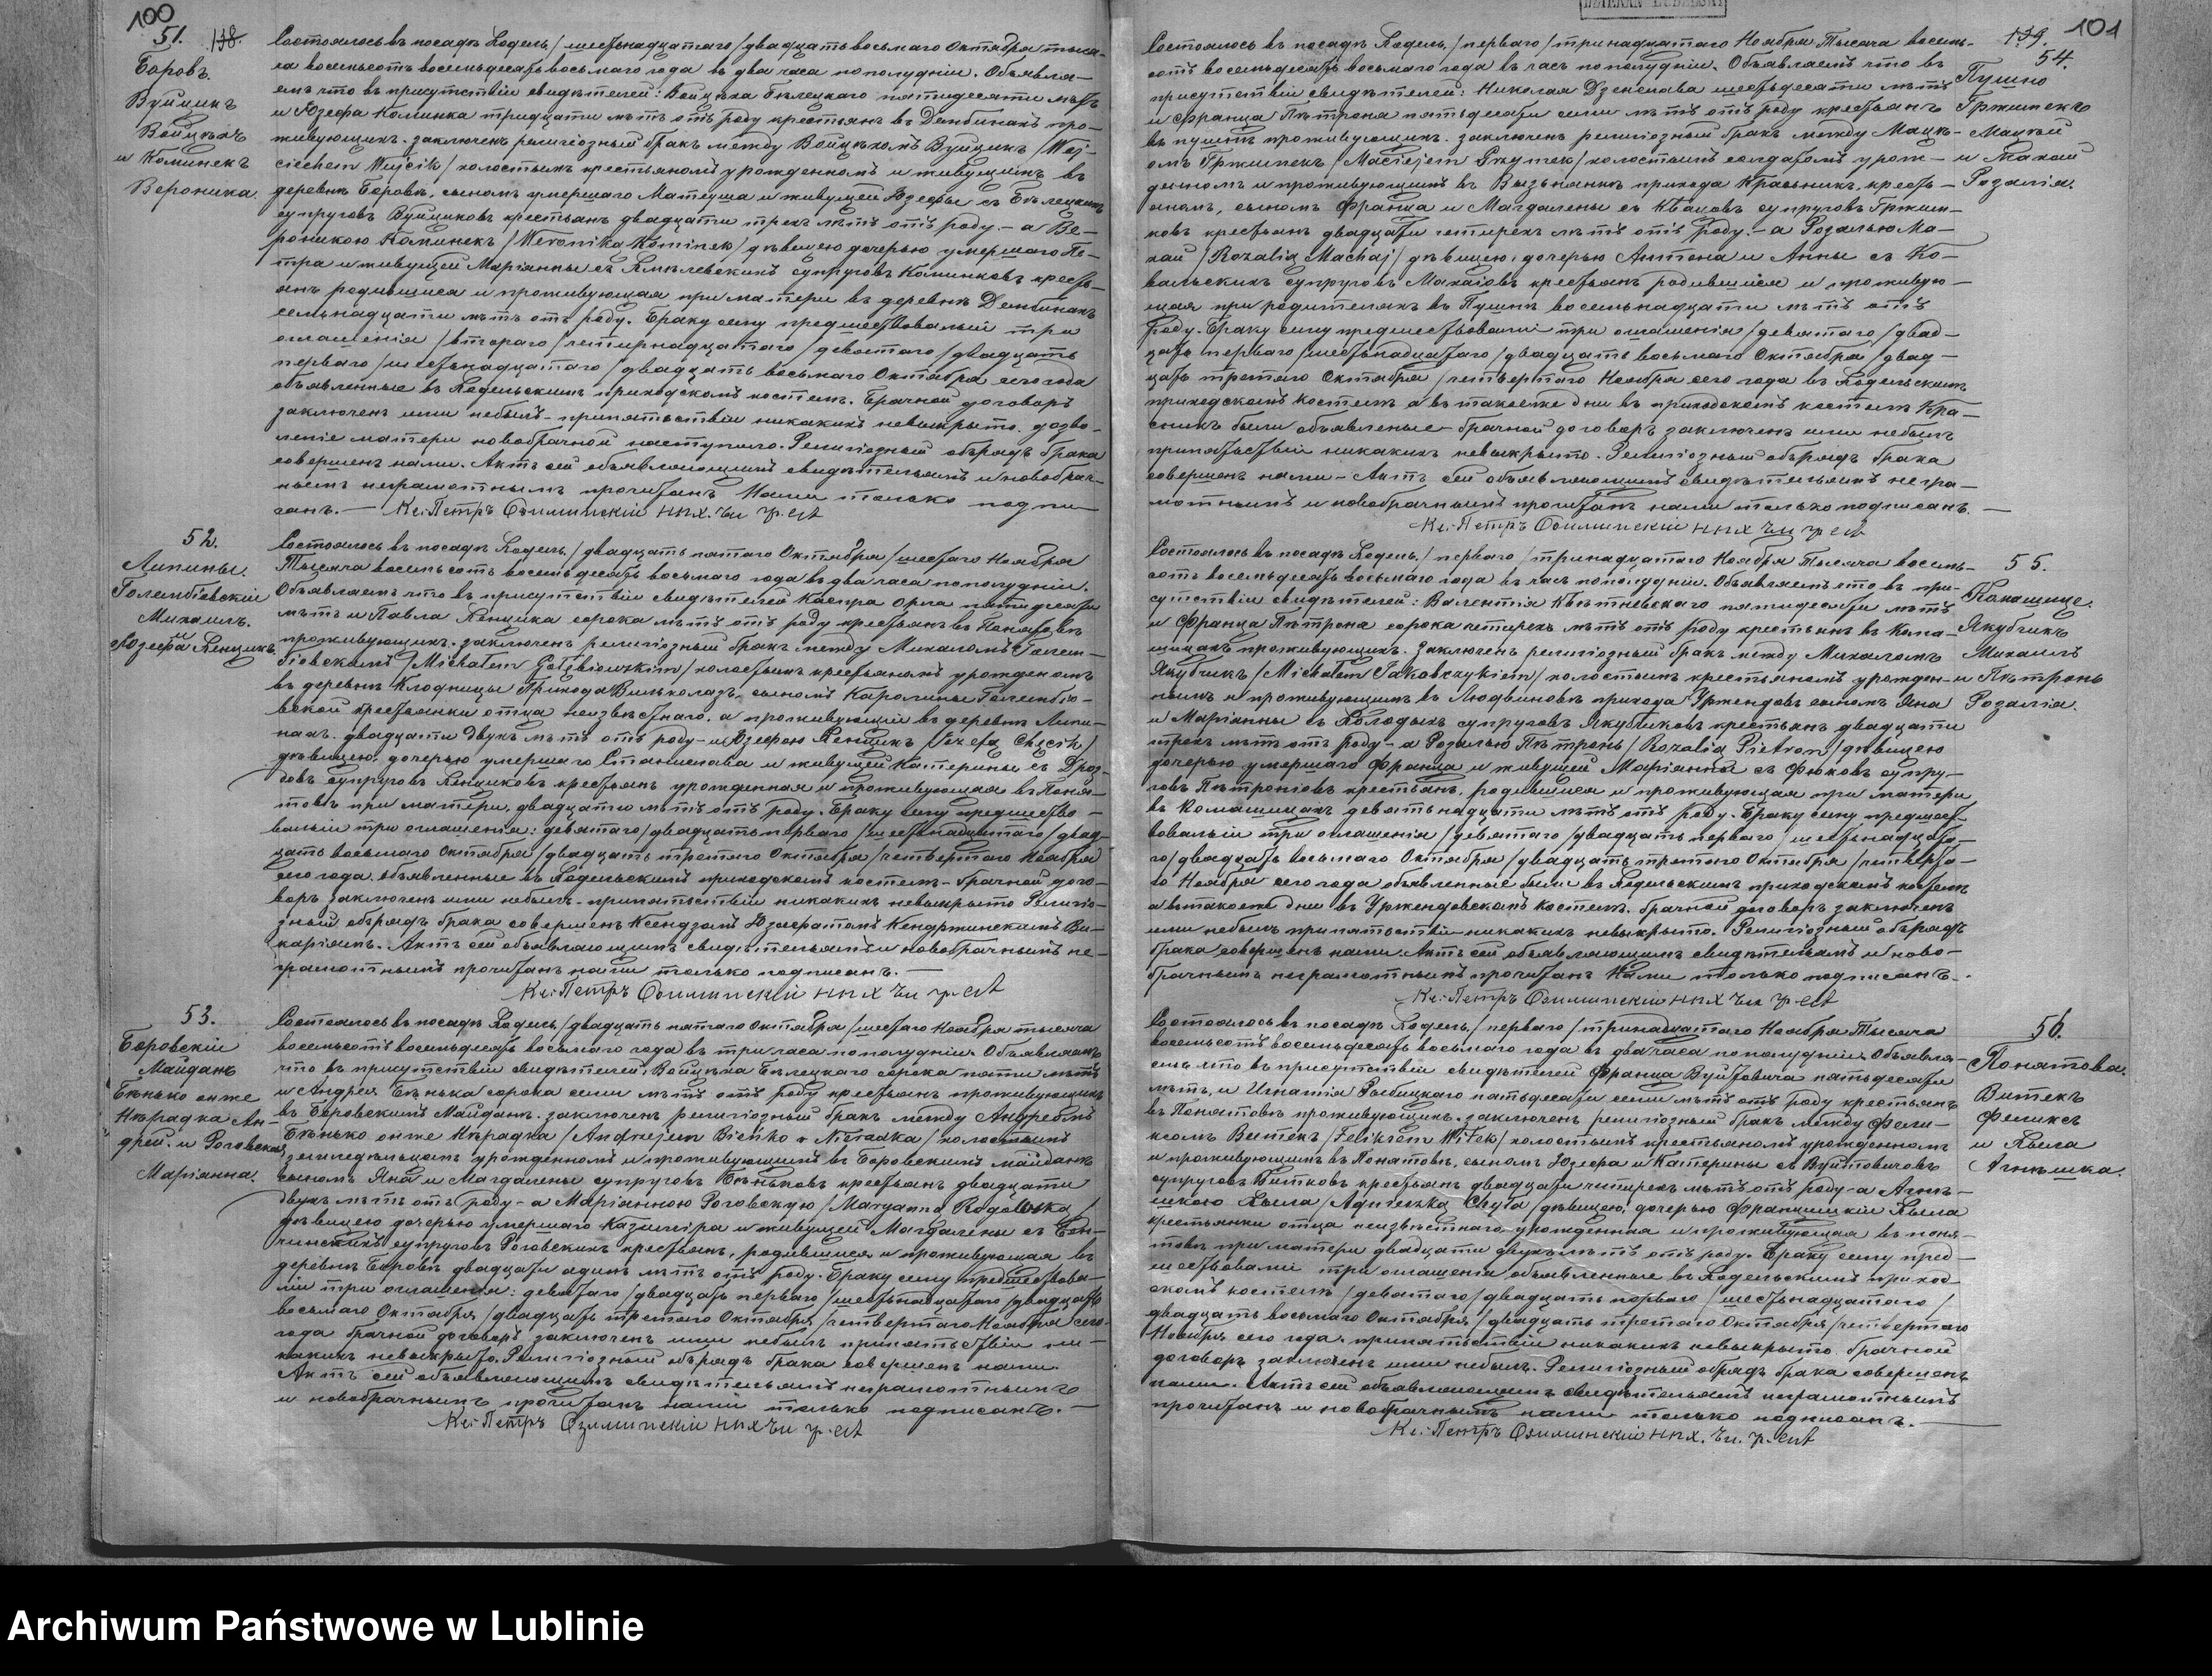 100
51. 138.
Боровъ.
Вуйцикъ
Войцѣхъ
и Коминекъ
Вероника.
Состоялось въ посадѣ Ходель, /шестьнадцатаго/ двадцать восьмаго Октября тыся-
ча восемьсотъ восемьдесятъ восьмаго года въ два часа пополудни. Объявля-
емъ что въ присутствіи свидѣтелей: Войцѣха Бѣлецкаго пятидесяти лѣтъ
и Юзефа Коминка тридцати лѣтъ отъ роду крестьянъ въ Дембинахъ про-
живующихъ. заключенъ религіозный бракъ между Войцѣхомъ Вуйцикъ /Woj-
ciechem Wujcik/ холостымъ крестьяномъ урожденнымъ и живущимъ въ
деревнѣ Боровѣ, сыномъ умершаго Матеуша и живущей Юзефы съ Бѣлецкихъ
супруговъ Вуйциковъ крестьянъ двадцати трехъ лѣтъ отъ роду. - а Ве-
роникою Коминекъ /Weronika Kominek/ дѣвицею дочерью умершаго Пе-
тра и живущей Маріанны съ супруговъ Коминковъ кресть-
янъ родившися и проживующая при матери въ деревнѣ Дембинахъ
семьнадцати лѣтъ отъ роду. Браку сему предшествовали три
оглашенія /втораго/ четырнадцатаго /девятаго/ двадцать
перваго /шестьнадцатаго/ двадцать восьмаго Октября сего года
объявленные въ Ходельскимъ приходскомъ костелѣ. Брачной договоръ
заключенъ ими небылъ - припятствіи никакихъ невыкрыто. дозво-
леніе матери новобрачной наступило. Религіозный обрядъ брака
совершенъ нами. Актъ сей объявляющимъ свидѣтельямъ и новобрач-
нымъ неграмотнымъ прочитанъ Нами только подпи-
санъ. — Кс: Петръ
52.
Липины.
Голембіовскій
Михаилъ.
и
Юзефа Хенцикъ
Состоялось въ посадѣ Ходель, /двадцать пятаго Октября/ шестаго Ноября
Тысяча восемьсотъ восемьдесятъ восьмаго года въ два часа пополудни.
Объявляемъ что въ присутствіи свидѣтелей Каспра Орла пятидесяти
лѣтъ и Павла Хенцика сорока лѣтъ отъ роду крестьянъ въ Понятовѣ
проживующихъ. заключенъ религіозный бракъ между Михаломъ Голем-
біовскимъ /Michałem Gołębiowskim/ холостымъ крестьяномъ урожденомъ
въ деревнѣ Клодницы Прихода Вильколазъ, сыномъ Каролины Голембіо-
вской крестьянки отца неизвѣстнаго, а проживующій въ деревнѣ Липи-
нахъ. двадцати двухъ лѣтъ отъ роду - и Юзефою Хенцикъ /Jozefa Chęcik/
дѣвицею, дочерью умершаго Станислава и живущей Катерины съ Дроз-
довъ супруговъ Хенциковъ крестьянъ урожденная и проживующая въ Поня-
товѣ при матери, двадцати лѣтъ отъ роду. Браку сему предшество-
вали три оглашенія: девятаго /двадцать перваго/ шестьнадцатаго /двад-
цать восьмаго Октября /двадцать третяго Октября /четвертаго Ноября
сего года. объявленные въ Ходельскимъ приходскомъ костелѣ - брачной дого-
воръ заключенъ ими небылъ - припятствіи никакихъ невыкрыто Религіо-
зный обрядъ брака совершенъ Ксендзомъ Юзефатомъ Кендржинскимъ Ви-
каріямъ. Актъ сей объявляющимъ свидѣтельямъ и новобрачнымъ не-
грамотнымъ прочитанъ нами только подписанъ. —
Кс: Петръ
53.
Боровскій
Майданъ
Бѣнько онже
Нѣрадка Ан-
дрей. и Роговска
Маріанна.
Состоялось въ посадѣ Ходель, /двадцать пятаго Октября /шестаго Ноября тысяча
восемьсотъ восемьдесятъ восьмаго года въ три часа пополудни. Объявляемъ
что въ присутствіи свидѣтелей, Войцѣха Бѣлецкаго сорока пяти лѣтъ
и Андрея Бѣнька сорока семи лѣтъ отъ роду крестьянъ проживующихъ
въ Боровскимъ Майданѣ. заключенъ религіозный бракъ между Андреемъ
Бѣнько онже Нѣрадка /Andrzejem Bieńko v Nieradka/ холостымъ
земледѣльцомъ урожденномъ и проживующимъ въ Боровскимъ майданѣ
сыномъ Яна и Магдалены супруговъ Бѣньковъ крестьянъ двадцати
двухъ лѣтъ отъ роду - а Маріанною Роговскую /Maryanna Rogowska/
дѣвицею дочерью умершаго Казимира и живущей Магдалены съ
супруговъ Роговскихъ крестьянъ, родившися и проживующая въ
деревнѣ Боровѣ двадцати одинъ лѣтъ отъ роду. Браку сему предшествова-
ли три оглашенія: девятаго /двадцать перваго /шестьнадцатаго /двадцать
восьмаго Октября /двадцать третяго Октября /четвертаго Ноября сего
года брачной договоръ заключенъ ими небылъ припятствіи ни-
какихъ невыкрыто. Религіозный обрядъ брака совершенъ нами.
Актъ сей объявляющимъ свидѣтельямъ неграмотнымъ
и новобрачнымъ прочитанъ нами только подписанъ. —
Кс: Петръ
101
139.
54.
Пушно
Гржимекъ
Мацѣй
и Махай
Розалія.
Состоялось въ посадѣ Ходель, /перваго/ тринадцатаго Ноября Тысяча восемь-
сотъ восемьдесятъ восьмаго года въ часъ пополудни. Объявляемъ что въ
присутствіи свидѣтелей: Николая шестьдесяти лѣтъ
и Франца Пѣтрона пятьдесяти семи лѣтъ отъ роду крестьянъ
въ пушнѣ проживующихъ. заключенъ религіозный бракъ между Мацѣ-
омъ Гржимекъ /Maciejem Grzymek/ холостымъ солдатомъ урож-
деномъ и проживующимъ въ Вызьнянкѣ прихода Красьникъ, кресть-
яномъ, сыномъ Франца и Магдалены съ супруговъ Гржим-
ковъ крестьянъ двадцати четырехъ лѣтъ отъ роду. - а Розалью Ма-
хай /Rozalią Machaj/ дѣвицею, дочерью Антона и Анны съ Ко-
вальскихъ супруговъ Махаіовъ крестьянъ родившися и проживую-
щая при родителяхъ въ Пушнѣ восемьнадцати лѣтъ отъ
роду. Браку сему предшествовали три оглашенія /девятаго /двад-
цать перваго /шестьнадцатаго /двадцать восьмаго Октября /двад-
цать третяго Октября /четвертаго Ноября сего года въ Ходельскимъ
приходскомъ костелѣ а въ такоеже дни въ приходскомъ костелѣ Кра-
сникъ были объявленые - брачной договоръ заключенъ ими небылъ
припятьствіи никакихъ невыкрыто. Религіозный обрядъ брака
совершенъ нами - Актъ сей объявляющимъ свидѣтельямъ негра-
мотнымъ и новобрачнымъ прочитанъ нами только подписанъ. —
Кс: Петръ
55.
Копанице.
Якубчикъ
Михаилъ
и Пѣтронь
Розалія.
Состоялось въ посадѣ Ходель, /перваго /тринадцатаго Ноября Тысяча восемь-
сотъ восемьдесятъ восьмаго года въ часъ пополудни. Объявляемъ что въ при-
сутствіи свидѣтелей: Валентія Квѣтневскаго пятидесяти лѣтъ
и Франца Пѣтрона сорока четерехъ лѣтъ отъ роду крестьянъ въ
проживующихъ. Заключенъ религіозный бракъ между Михаломъ
Якубчикъ /Michałem Jakobczykiem/ холостымъ крестьяномъ урожден-
нымъ и проживующимъ въ Людвиновѣ прихода Уржендовъ сыномъ Яна
и Маріанны съ супруговъ Якубчиковъ крестьянъ двадцати
трехъ лѣтъ отъ роду - а Розалью Пѣтронь /Rozalia Pietron/ дѣвицею
дочерью умершаго Франца и живущей Маріанны съ супру-
говъ Пѣтроніовъ крестьянъ, родившися и проживующая при матери
въ девятьнадцати лѣтъ отъ роду. Браку сему предшест-
вовали три оглашенія /девятаго /двадцать перваго /шестьнадцата-
го/ двадцать восьмаго Октября /двадцать третяго Октября /четверта-
го Ноября сего года объявленные были въ Ходельскимъ приходскомъ костелѣ
а въ такоеже дни въ Уржендовскомъ костелѣ. брачной договоръ заключенъ
ими небылъ припятствіи никакихъ невыкрыто. Религіозный обрядъ
брака совершенъ нами. Актъ сей объявляющимъ свидѣтельямъ и ново-
брачнымъ неграмотнымъ прочитанъ Нами только подписанъ. -
Кс: Петръ
56.
Понятова.
Витекъ
Феликсъ
и Хыла
Агнѣшка.
Состоялось въ посадѣ Ходель, /перваго /тринадцатаго Ноября Тысяча
восемьсотъ восемьдесятъ восьмаго года въ два часа пополудни. Объявля-
емъ что въ присутствіи свидѣтелей Франца Вуйтовича пятьдесяти
лѣтъ, и Игнатія Рыбицкаго пятьдесяти семи лѣтъ отъ роду крестьянъ
въ Понятовѣ проживующихъ. заключенъ религіозный бракъ между Фели-
ксомъ Витекъ /Feliksem Witek/ холостымъ крестьяномъ урожденномъ
и проживующимъ въ Понятовѣ, сыномъ Юзефа и Катерины съ Вуйтовичовъ
супруговъ Витковъ крестьянъ двадцати четырехъ лѣтъ отъ роду - а Агнѣ-
шкою Хыла /Agnieszką Chyła/ дѣвицею, дочерью Францишки Хыла
крестьянки отца неизвѣстнаго урожденная и проживующая въ поня-
товѣ при матери двадцати двухъ лѣтъ отъ роду. Браку сему пред-
шествовали три оглашенія объявленные въ Ходельскимъ приход-
скомъ костелѣ /девятаго /двадцать перваго /шестьнадцатаго/
двадцать восьмаго Октября /двадцать третяго Октября /четвертаго
Ноября сего года. припятьствіи никакихъ невыкрыто. брачной
договоръ заключенъ ими небылъ. Религіозный обрядъ брака совершенъ
нами. Актъ сей объявляющимъ свидѣтельямъ неграмотнымъ
прочитанъ и новобрачнымъ нами только подписанъ. —
Кс: Петръ
Archiwum Państwowe w Lublinie